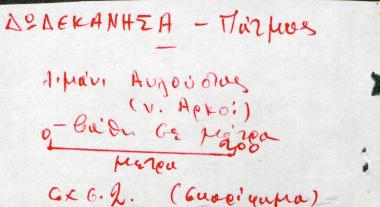 ΔΩΔΕΚΑΝΗΣΑ - Πάτμος
Λιμάνι Αυγούστας
(ν. Αρκοί)
- βάθη σε μέτρα
0 200
μετρα
σχ σ. 2. (σκαρίφημα)